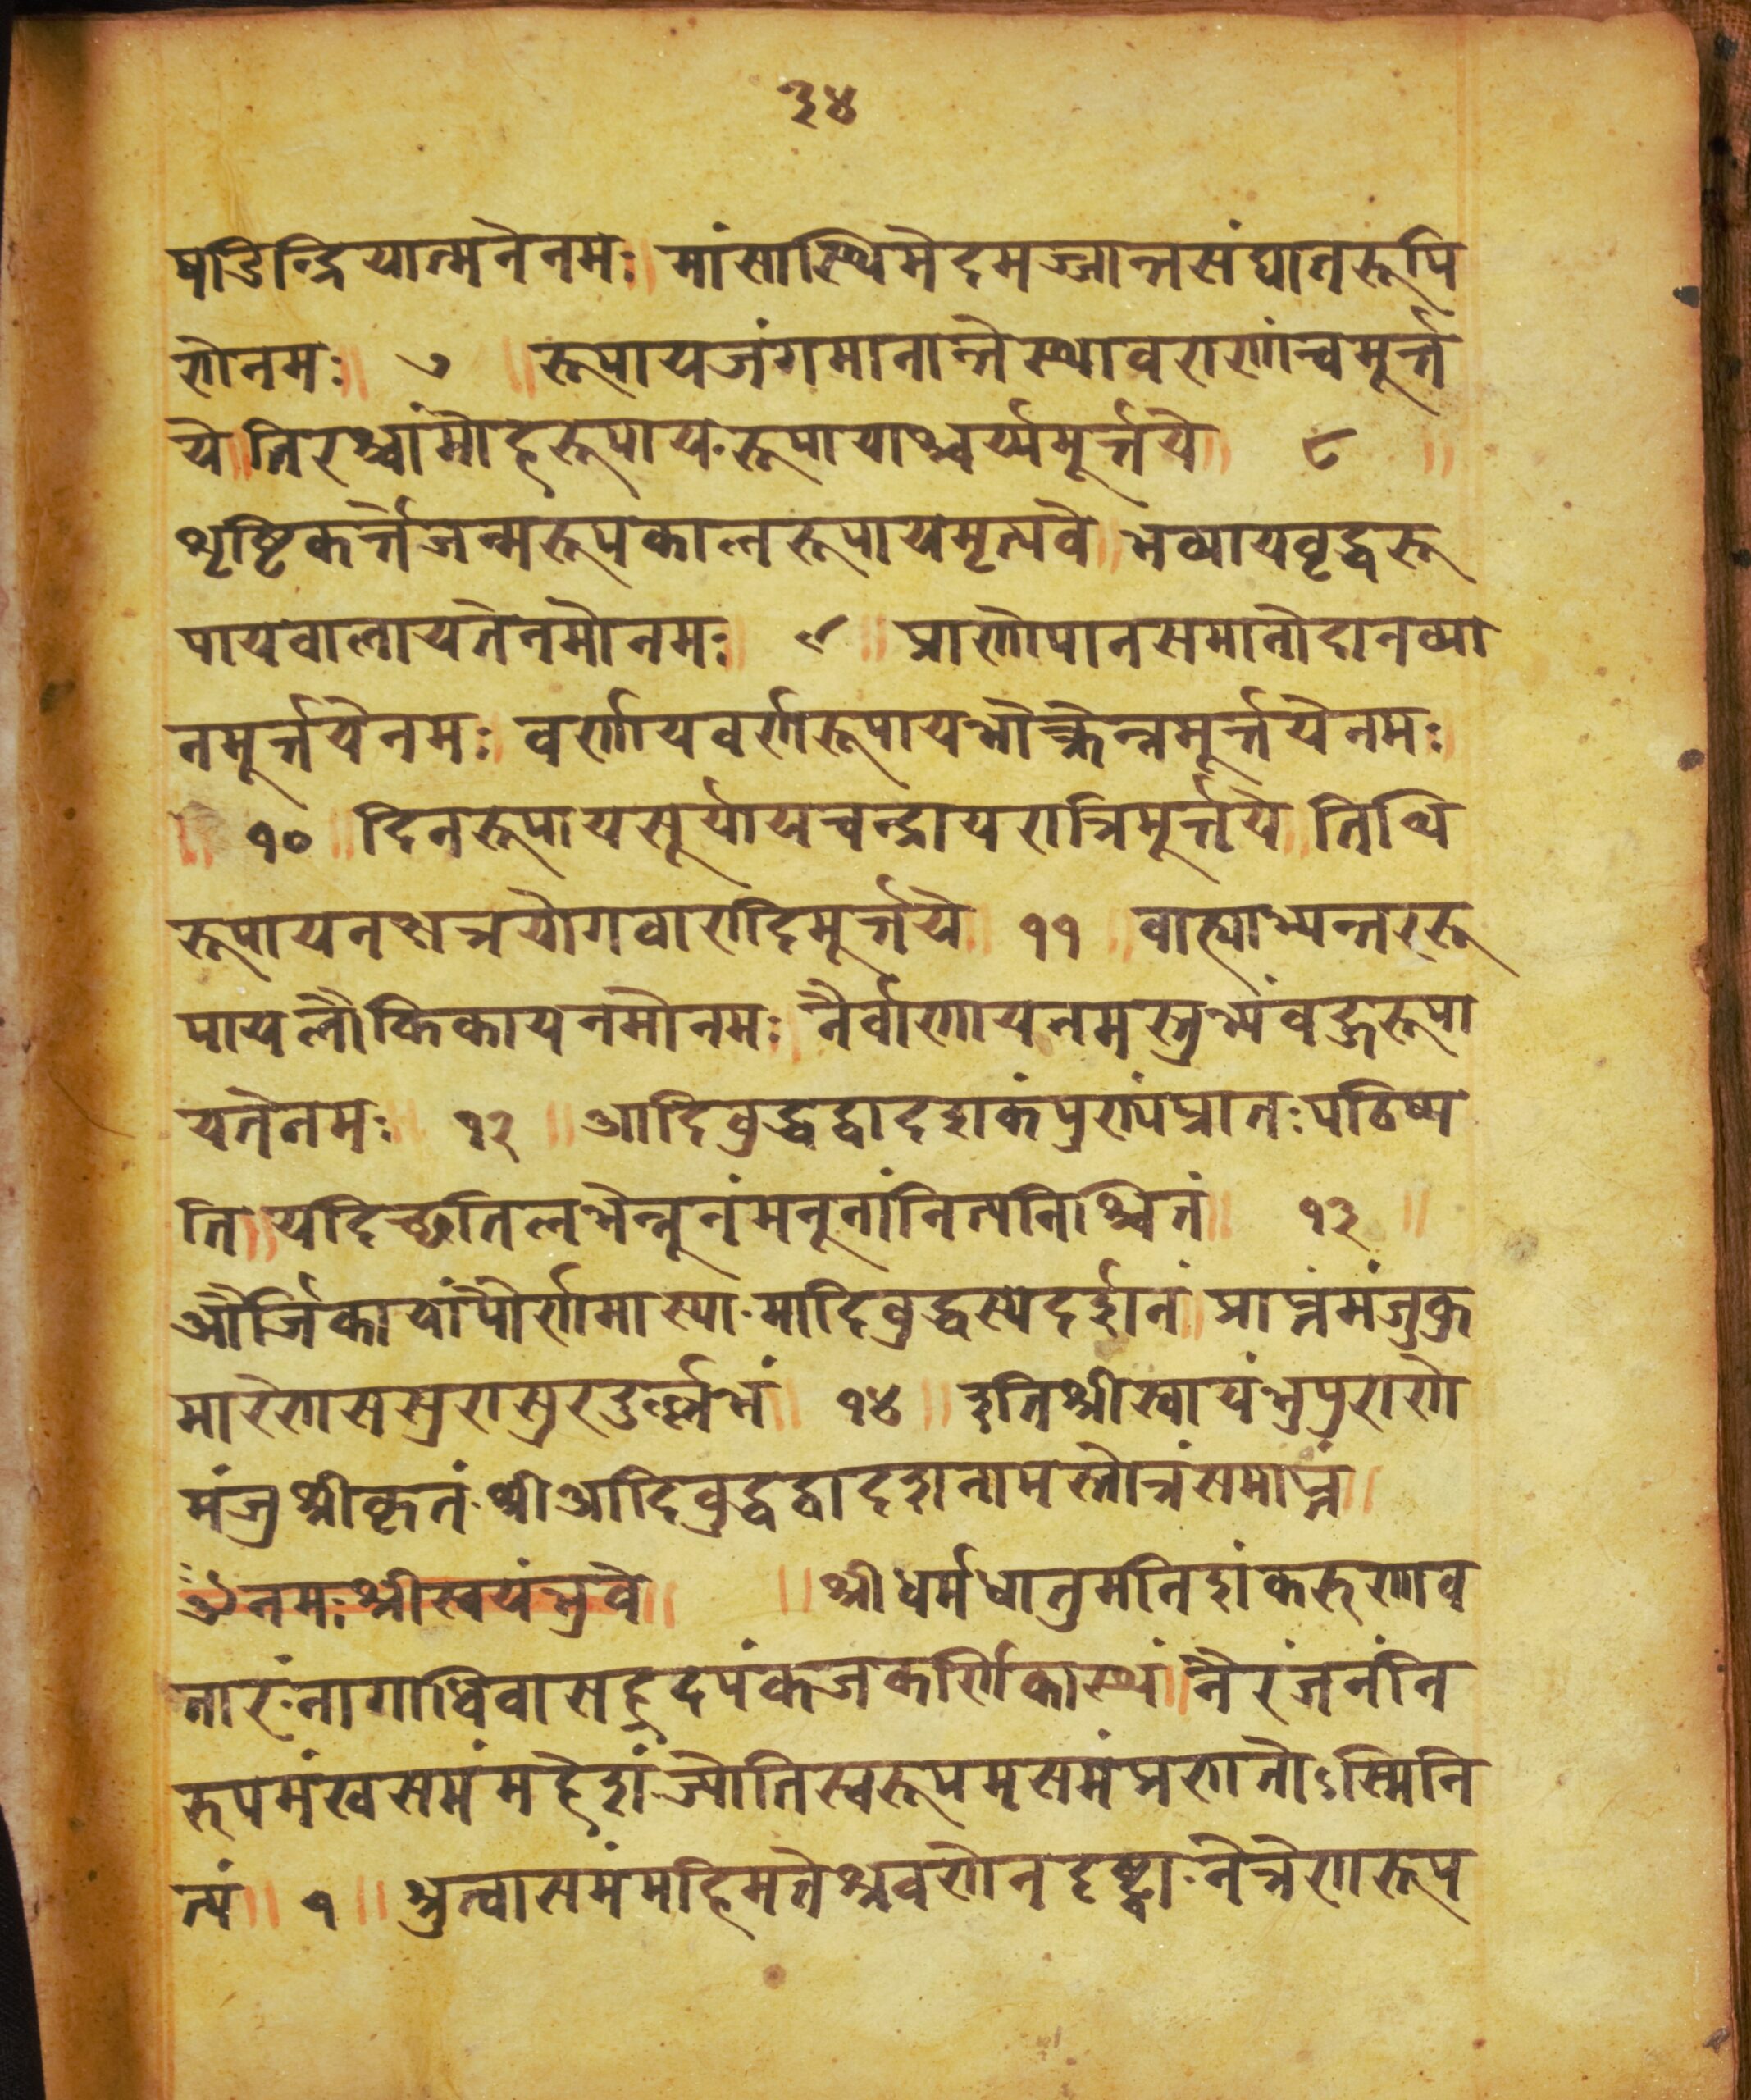 ३४
षडिन्द्रियात्मनेनमः ॥ मांसास्थिमेदमज्जान्तसंघातरूपि
णेनमः ॥ ७ ॥ रूपायजंगमानान्तेस्थावराणांन्चमूर्त्त
ये ॥ तिरश्चांमोहरूपाय रूपायाश्चर्य्यमूर्त्तये ॥ ८ ॥
शृष्टिकर्त्तेजन्मरूपकालरूपायमृत्यवे ॥ भव्यायवृद्धरू
पायवालायतेनमोनमः ॥ ९ ॥ प्राणोपानसमानोदानव्या
नमूर्त्तयेनमः ॥ वर्णायवर्णरूपायभोक्त्रेन्नमूर्त्तयेनमः
॥ १० ॥ दिनरूपायसूर्यायचन्द्रायरात्रिमूर्त्तये ॥ तिथि
रूपायनक्षत्रयोगवारादिमूर्त्तये ॥ ११ ॥ वाह्याभ्यन्तररू
पायलौकिकायनमोनमः ॥ नैर्वाणायनमस्तुभ्यंवहुरूपा
यतेनमः ॥ १२ ॥ आदिबुद्धद्वादशकंपुण्यंप्रातःपठिष्य
ति ॥ यदिच्छतिलभेन्नूनंमनूनांनित्यनिश्चितं ॥ १३ ॥
और्जिकायांपौर्णमास्या मादिबुद्धस्येदर्शनं ॥ प्राप्तंमंजुकु
मारेणससुरासुरदुर्ल्लभं ॥ १४ ॥ इतिश्रीस्वायंभुपुराणे
मंजुश्रीकृतं श्रीआदिबुद्धद्वादशनामस्तोत्रंसमाप्तं ॥
ॐनमःश्रीस्वयंभुवे ॥ ॥ श्रीधर्मधातुमनिशंकरुणाव
तारं नागाधिवासहृदपंकजकर्णिकास्थं ॥ नैरंजनंनि
रुपमंखसमंमहेशं ज्योतिस्वरूपमसमंप्रणतोऽस्मिनि
त्यं ॥ १ ॥ श्रुत्वासमंमहिमतेश्रवणेनदृष्ट्वा नेत्रेणरूप